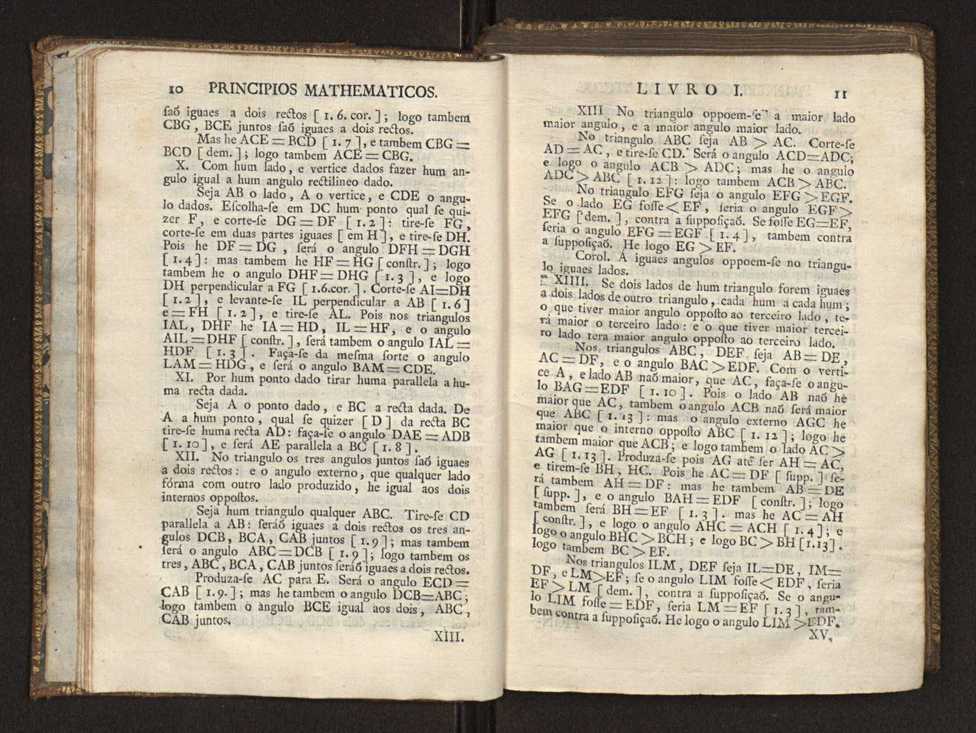 10 PRINCIPIOS MATHEMATICOS.
ſaõ iguaes a dois rectos [ 1. 6. cor. ]; logo tambem
CBG, BCE juntos ſaõ iguaes a dois rectos.
Mas he ACE = BCD [ 1. 7 ], e tambem CBG =
BCD [ dem. ]; logo tambem ACE = CBG.
X. Com hum lado, e vertice dados fazer hum an-
gulo igual a hum angulo rectilineo dado.
Seja AB o lado, A o vertice, e CDE o angu-
lo dados. Eſcolha-ſe em DC hum ponto qual ſe qui-
zer F, e corte-ſe DG = DF [ 1. 2 ]: tire-ſe FG,
corte-ſe em duas partes iguaes [ em H ], e tire-ſe DH.
Pois he DF = DG, ſerá o angulo DFH = DGH
[ 1. 4 ]: mas tambem he HF = HG [ conſtr. ]; logo
tambem he o angulo DHF = DHG [ 1. 3 ], e logo
DH perpendicular a FG [ 1.6.cor. ]. Corte-ſe AI = DH
[ 1. 2 ], e levante-ſe IL perpendicular a AB [ 1. 6 ]
e = FH [ 1. 2 ], e tire-ſe AL. Pois nos triangulos
IAL, DHF he IA = HD, IL = HF, e o angulo
AIL = DHF [ conſtr. ], ſerá tambem o angulo IAL =
HDF [ 1. 3 ]. Faça-ſe da meſma ſorte o angulo
LAM = HDG, e ſerá o angulo BAM = CDE.
XI. Por hum ponto dado tirar huma parallela a hu-
ma recta dada.
Seja A o ponto dado, e BC a recta dada. De
A a hum ponto, qual ſe quizer [ D ] da recta BC
tire-ſe huma recta AD: faça-ſe o angulo DAE = ADB
[ 1. 10 ], e ſerá AE parallela a BC [ 1. 8 ].
XII. No triangulo os tres angulos juntos ſaõ iguaes
a dois rectos: e o angulo externo, que qualquer lado
fórma com outro lado produzido, he igual aos dois
internos oppoſtos.
Seja hum triangulo qualquer ABC. Tire-ſe CD
parallela a AB: ſeráõ iguaes a dois rectos os tres an-
gulos DCB, BCA, CAB juntos [ 1. 9 ]; mas tambem
ſerá o angulo ABC = DCB [ 1. 9 ]; logo tambem os
tres, ABC, BCA, CAB juntos ſeráõ iguaes a dois rectos.
Produza-ſe AC para E. Será o angulo ECD =
CAB [ 1. 9. ]; mas he tambem o angulo DCB = ABC;
logo tambem o angulo BCE igual aos dois, ABC,
CAB juntos.
XIII.
LIVRO I. 11
XIII. No triangulo oppoem-ſe a maior lado
maior angulo, e a maior angulo maior lado.
No triangulo ABC ſeja AB > AC. Corte-ſe
AD = AC, e tire-ſe CD. Será o angulo ACD = ADC;
e logo o angulo ACB > ADC; mas he o angulo
ADC > ABC [ 1. 12 ]: logo tambem ACB > ABC.
No triangulo EFG ſeja o angulo EFG > EGF.
Se o lado EG foſſe < EF, ſeria o angulo EGF >
EFG [ dem. ], contra a ſuppoſiçaõ. Se foſſe EG = EF,
ſeria o angulo EFG = EGF [ 1. 4 ], tambem contra
a ſuppoſiçaõ. He logo EG > EF.
Corol. A iguaes angulos oppoem-ſe no triangu-
lo iguaes lados.
XIIII. Se dois lados de hum triangulo forem iguaes
a dois lados de outro triangulo, cada hum a cada hum;
o que tiver maior angulo oppoſto ao terceiro lado, te-
rá maior o terceiro lado: e o que tiver maior tercei-
ro lado terá maior angulo oppoſto ao terceiro lado.
Nos triangulos ABC, DEF ſeja AB = DE,
AC = DF, e o angulo BAC > EDF. Com o verti-
ce A, e lado AB naõ maior, que AC, faça-ſe o angu-
lo BAG = EDF [ 1. 10 ]. Pois o lado AB naõ he
maior que AC, tambem o angulo ACB naõ ſerá maior
que ABC [ 1. 13 ]: mas o angulo externo AGC he
maior que o interno oppoſto ABC [ 1. 12 ]; logo he
tambem maior que ACB; e logo tambem o lado AC >
AG [ 1. 13 ]. Produza-ſe pois AG até ſer AH = AC,
e tirem-ſe BH, HC. Pois he AC = DF [ ſupp. ] ſe-
rá tambem AH = DF: mas he tambem AB = DE
[ ſupp. ], e o angulo BAH = EDF [ conſtr. ]; logo
tambem ſerá BH = EF [ 1. 3 ]. mas he AC = AH
[ conſtr. ], e logo o angulo AHC = ACH [ 1. 4 ]; e
logo o angulo BHC > BCH; e logo BC > BH [ 1.13 ].
logo tambem BC > EF.
Nos triangulos ILM, DEF ſeja IL = DE, IM =
DF, e LM > EF; ſe o angulo LIM foſſe < EDF, ſeria
EF > LM [ dem. ], contra a ſuppoſiçaõ. Se o angu-
lo LIM foſſe = EDF, ſeria LM = EF [ 1. 3 ], tam-
bem contra a ſuppoſiçaõ. He logo o angulo LIM > EDF.
XV.